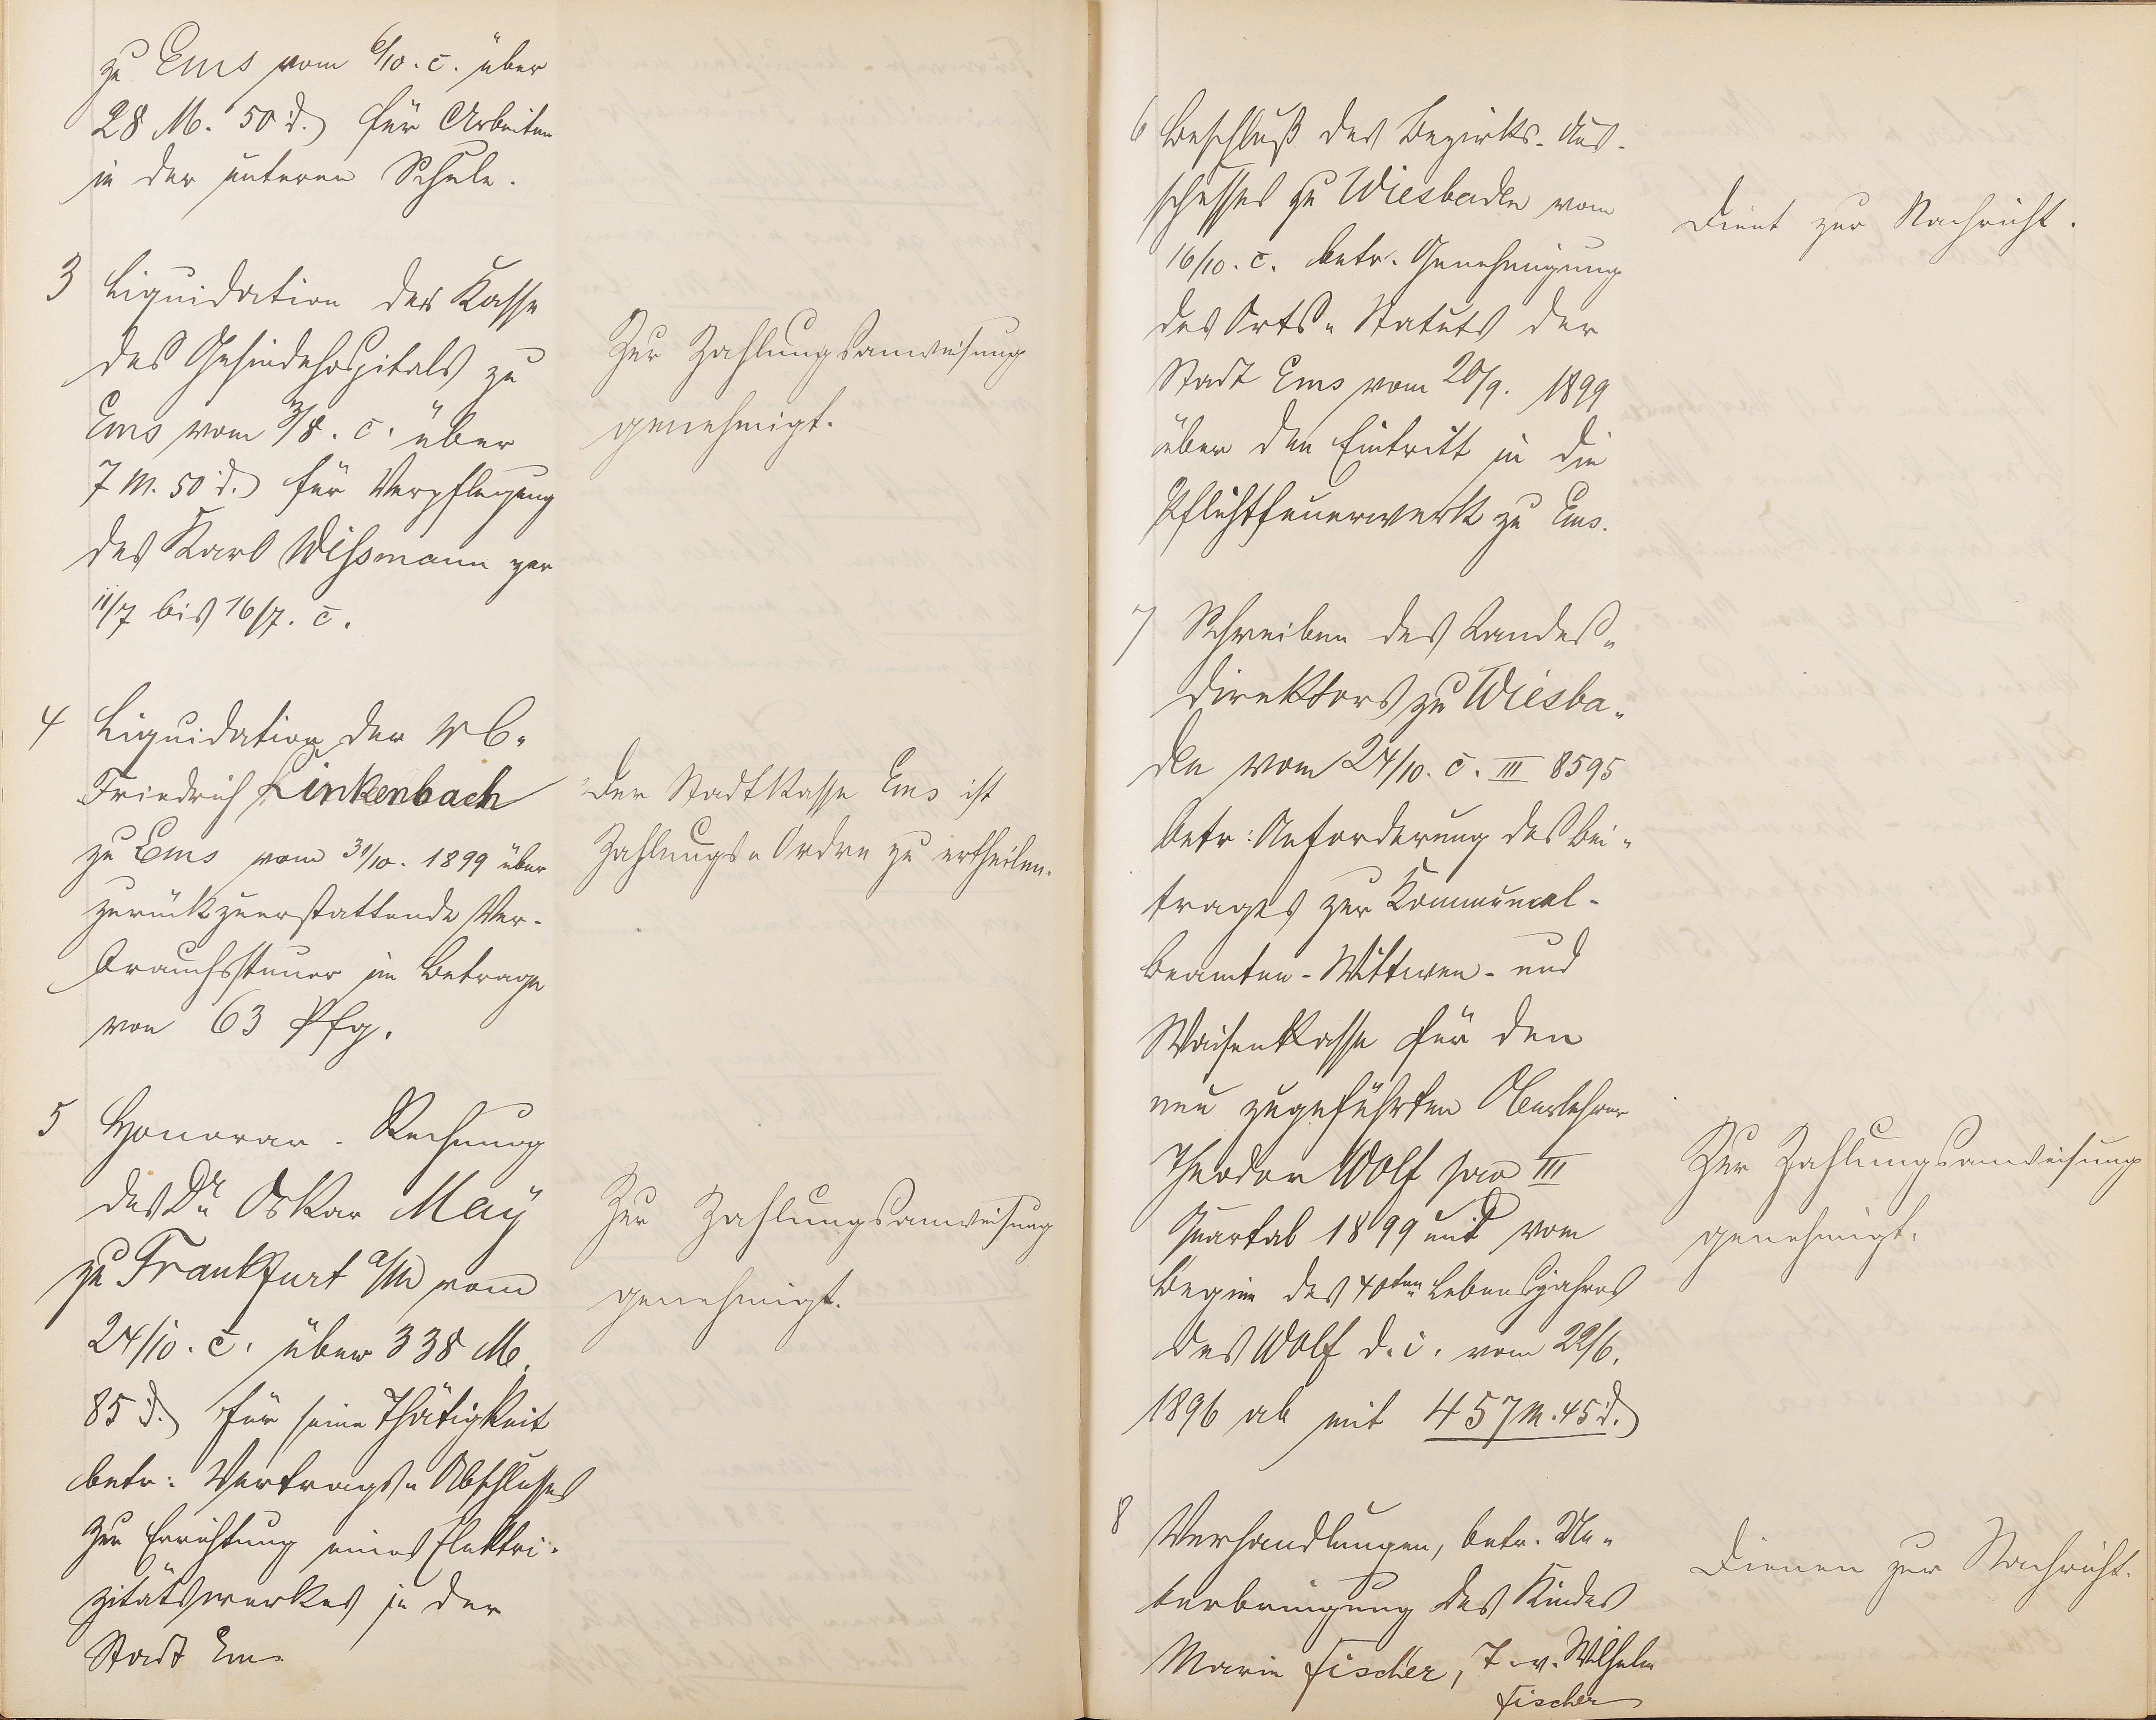 zu Ems vom 6/10. c. über
28 M. 50 d. für Arbeiten
in der unteren Schule.
3 Liquidation der Kasse
des Gesindehospitals zu
Ems vom 3/8. c. über
7 M. 50 d. für Verpflegung
des Karl Wissmann per
11/7 bis 16/7. c.
Zur Zahlungsanweisung
genehmigt.
4 Liquidation der
Friedrich Linkenbach
zu Ems vom 31/10. 1899 über
zurückzuerstattende Ver-
brauchssteuer im Betrage
von 63 Pfg.
Der Stadtkasse Ems ist
Zahlungs-Ordre zu ertheilen.
5 Honorar-Rechnung
des Dr. Oskar May
zu Frankfurt a/M vom
24/10. c. über 338 M.
85 d. für seine Thätigkeit
betr: Vertrags-Abschlusses
zur Errichtung eines Elektri-
zitätswerkes in der
Stadt Ems
Zur Zahlungsanweisung
genehmigt.
6 Beschluß des Bezirks-Aus-
schusses zu Wiesbaden vom
16/10. c. betr. Genehmigung
des Orts-Statuts der
Stadt Ems vom 20/9. 1899
über den Eintritt in die
Pflichtfeuerwerk zu Ems.
Dient zur Nachricht.
7 Schreiben des Landes-
direktors zu Wiesba-
den vom 24/10. c. III 8595
betr: Anforderung des Bei-
trages zur Kommunal-
beamten-Wittwen- und
Waisenkasse für den
neu zugeführten Oberlehrer
Theodor Wolf pro III
Quartal 1899 und vom
Beginn des 40ten Lebensjahres
des Wolf d. i. vom 22/6.
1896 ab mit 457 M. 45 d.
Zur Zahlungsanweisung
genehmigt.
8 Verhandlungen, betr. Un-
terbringung des Kindes
Marie Fischer, T. v. Wilhelm
Fischer
Dienen zur Nachricht.